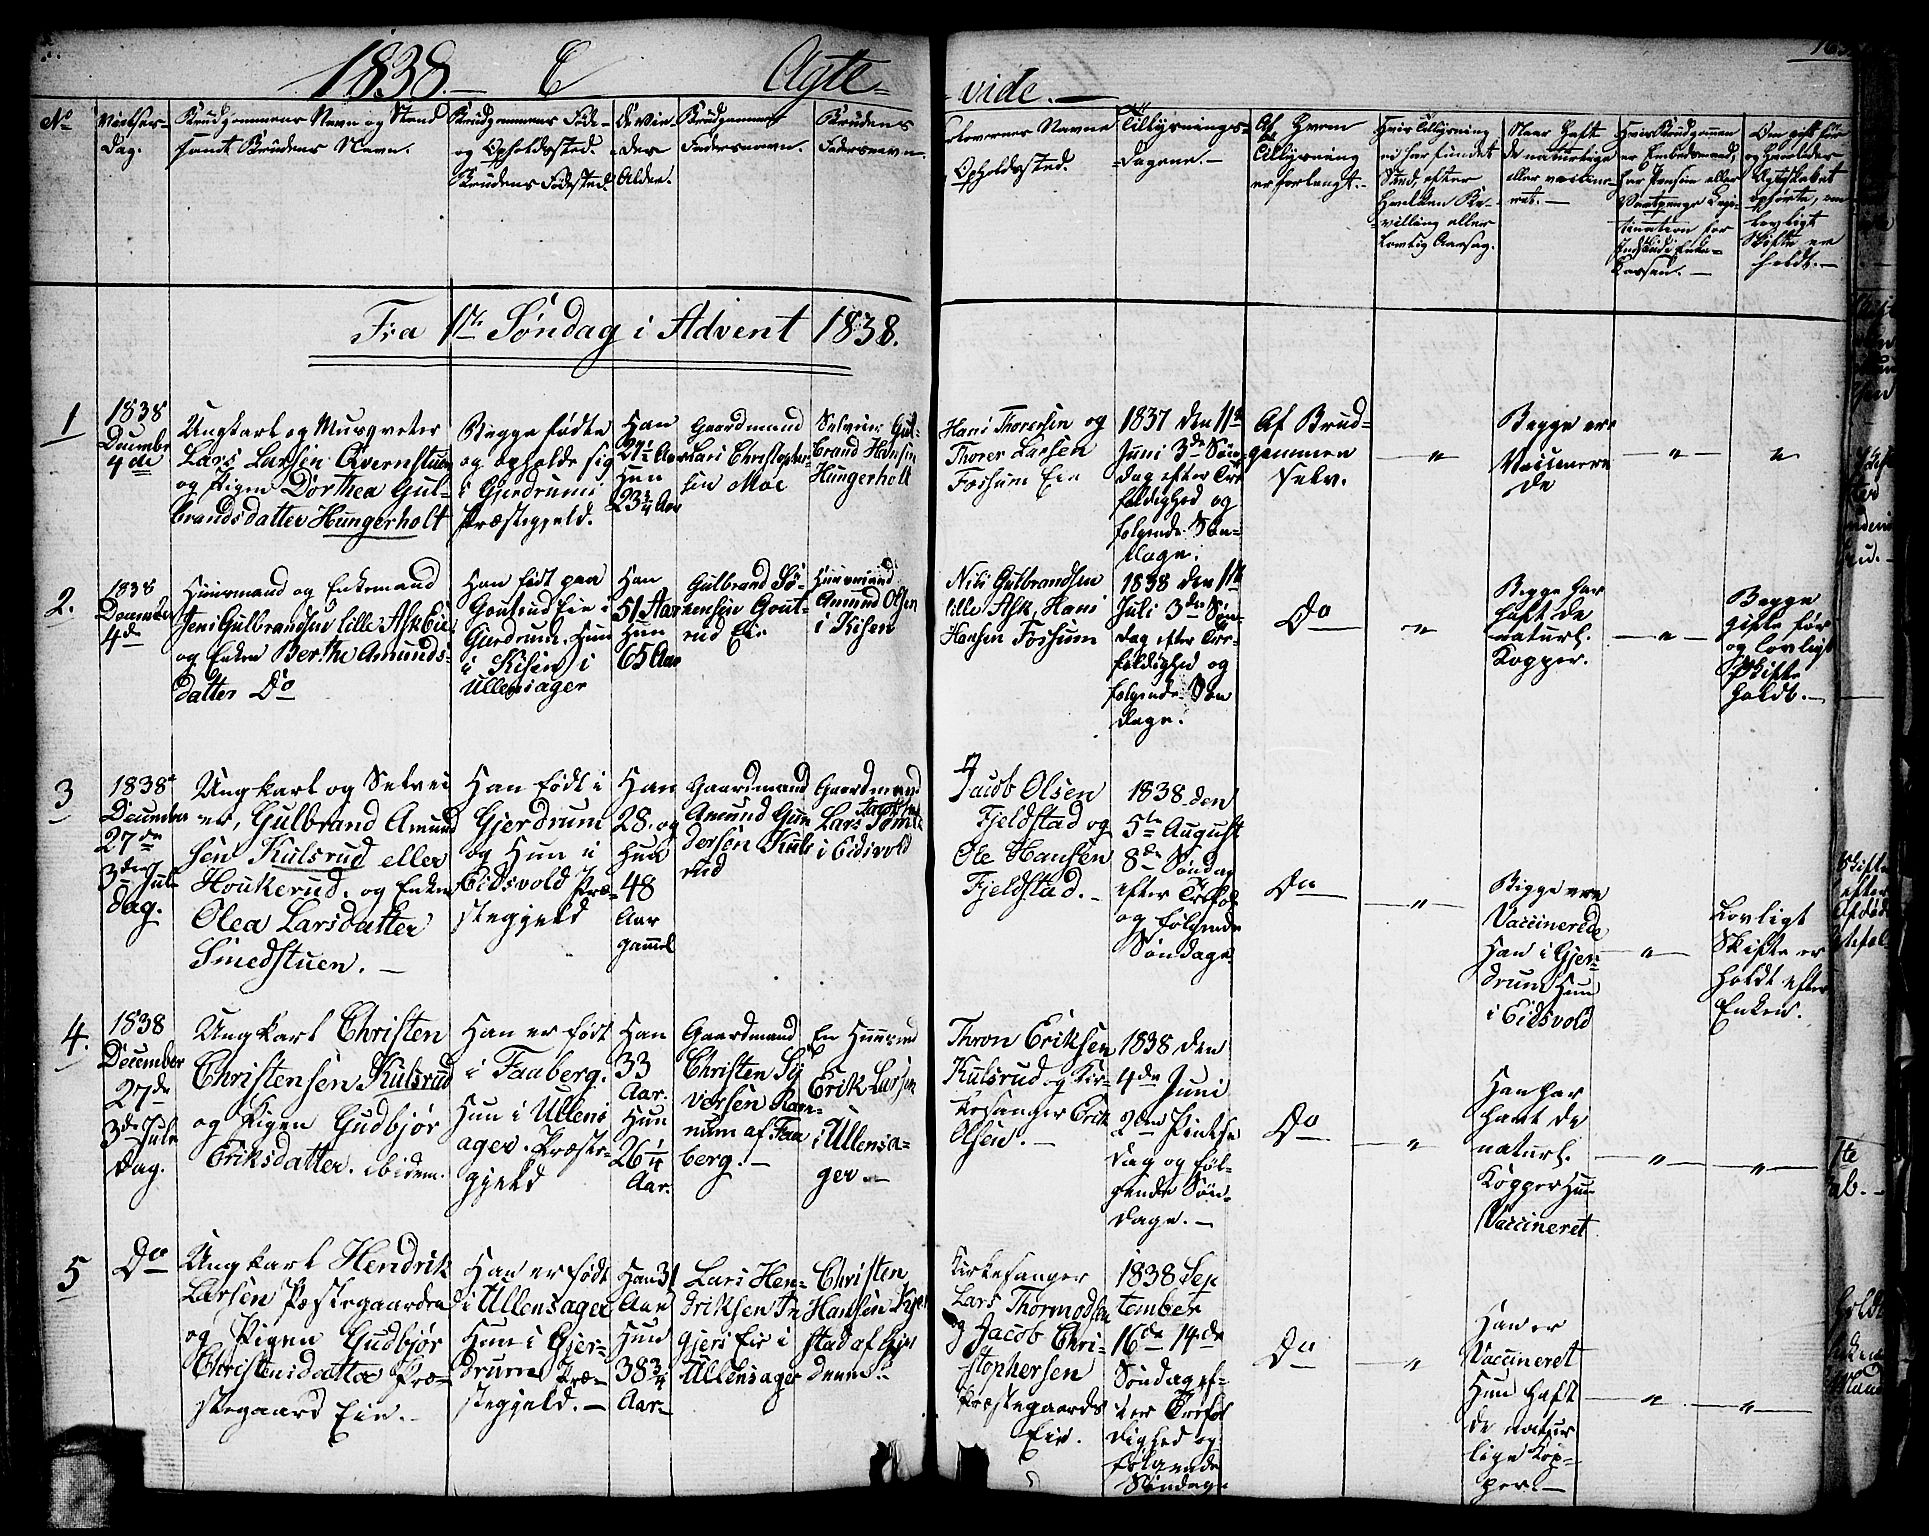 1838. C Ægte-vide.
No
Vielses-
Dag.
Brudgommens Navn og Stand
samt Brudens Navn.
Brudgommens Føde-
og Opholdssted.
Brudens Fødested.
De Vie-
des
Alder.
Brudgommens
Fadersnavn.
Brudens
Fadersnavn.
Forlovernes Navne
Opholdssted.
Tillysnings-
dagene.
Af Hvem
Tillysning
er forlangt.
Hvis Tillysning
ei har fundet
Sted, efter
hvilken Be-
villing eller
Lovlig Aarsag.
Naar haft
de naturlige
eller vaccine-
ret.
Hvis Brudgommen
er Embedsmand,
har Pension eller
Om gift før
og hvorledes
Ægteskabet
ophørte, om
Lovligt
Skifte er
holdt.
Fra 1ste Søndag i Advent 1838.
1
1838
December
4de
Ungkarl og Musqveter
Lars Larsen Qvernstuen
og Pigen Dorthea Gul-
brandsdatter Hungerholt
Begge fødte
og opholde sig
i Gjerdrums
Præstegjeld.
Han
24½ Aar
Hun
23¾ Aar
Gaardmand
Lars Christopher-
sen Moe
Selveier Gul-
brand Hansen
Hungerholt
Hans Thoresen og
Thorer Larsen
Fossum Eie
1837 den 11te
Juni 3de Søn-
dag efter Tre-
foldighed og
følgende Søn-
dage.
Af Brud-
gommen
Selv.
"
Begge ere
Vaccinere
de
"
"
2.
1838
December
4de
Huusmand og Enkemand
Jens Gulbrandsen lille Ask Eie
og Enken Berthe Amunds-
datter Do
Han født paa
Eie i
Gjerdrum. Hun
i Kisen i
Ullensager
Han
51 Aar
Hun
65 Aar
Gulbrand Sø-
rensen
rud Eie
Huusmand
Amund Olsen
i Kisen
Nils Gulbrandsen
lille Ask, Hans
Hansen Fossum
1838 den 11te
Juli 3de Søn-
dag efter Tre-
foldighed og
følgende Søn
dage.
Do
"
Begge har
haft de
naturl.
Kopper.
"
Begge
gifte før
og lovligt
Skifte
holdt.
3
1838
December
27de
3die Jule
dag.
Ungkarl og Selvei
er, Gulbrand Amund
sen Kulsrud eller
Houkerud. og Enken
Olea Larsdatter
Smedstuen.
Han født i
Gjerdrum
og Hun i
Eidsvold Præ-
stegjeld
Han
28. og
Hun
48
Aar
gammel
Gaardmand
Amund Gun
dersen Kuls
rud
Gaardmand
Lars
i Eidsvold
Jacob Olsen
Fjeldstad og
Ole Hansen
Fjeldstad.
1838 den
5te August
8de Søndag
efter Trefol
og følgende
Søndage
Do
"
Begge ere
Vaccinerede
Han i Gjer-
drum Hun
i Eidsvold
"
Lovligt
Skifte er
holdt efter
Enken.
4.
1838
December
27de
3de Jule
Dag.
Ungkarl Christen
Christensen Kulsrud
og Pigen Gudbjør
Eriksdatter. ibidem.
Han er født
i Faaberg.
Hun i Ullens
ager. Præste-
gjeld
Han
33
Aar.
Hun
26¼
Aar.
Gaardmand
Christen Sy
versen Ran-
num af Faa
berg.
En Huusmd
Erik Larsen
i Ullensa-
ger
Thron Eriksen
Kulsrud og Kir-
kesanger Erik
Olsen.
1838 den
4de Juni
2den Pintse
dag og føl-
gende Søn-
dage.
Do
"
Han har
havt de
naturl.
Kopper Hun
Vaccineret
"
"
5
Do
Ungkarl Hendrik
Larsen Præstegaarden
og Pigen Gudbjør
Christensdatter Præ-
stegaard Eie.
Han er født
i Ullensager
Hun i Gjer-
drum Præ-
stegjeld.
Han 31
Aar
Hun
38¾
Aar
Lars Hen-
driksen
Eie i
Ullensager
Christen
Hansen
Kirkesanger
Lars Thormodsen
og Jacob Chri-
stophersen
Præstegaards
Eie.
1838 Sep
tember
16de 14de
Søndag ef-
ter Trefol
dighed og
følgende
Søndage
Do
"
Han er
Vaccineret
Hun haft
de natur
lige Kop-
per.
"
"